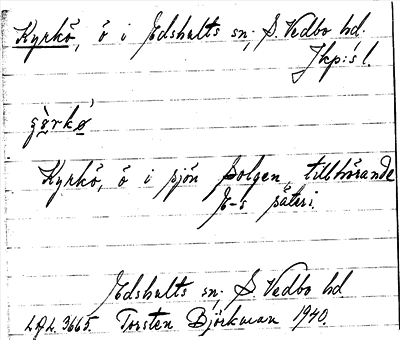 Kyrkö, ö i Edshults sn, S. Vedbo hd.
Jkp:s l.
Kyrkö, ö i sjön Solgen, tillhörande
E-s säteri.
Edshults sn, S. Vedbo hd
LAL. 3665. Torsten Björkman 1940.